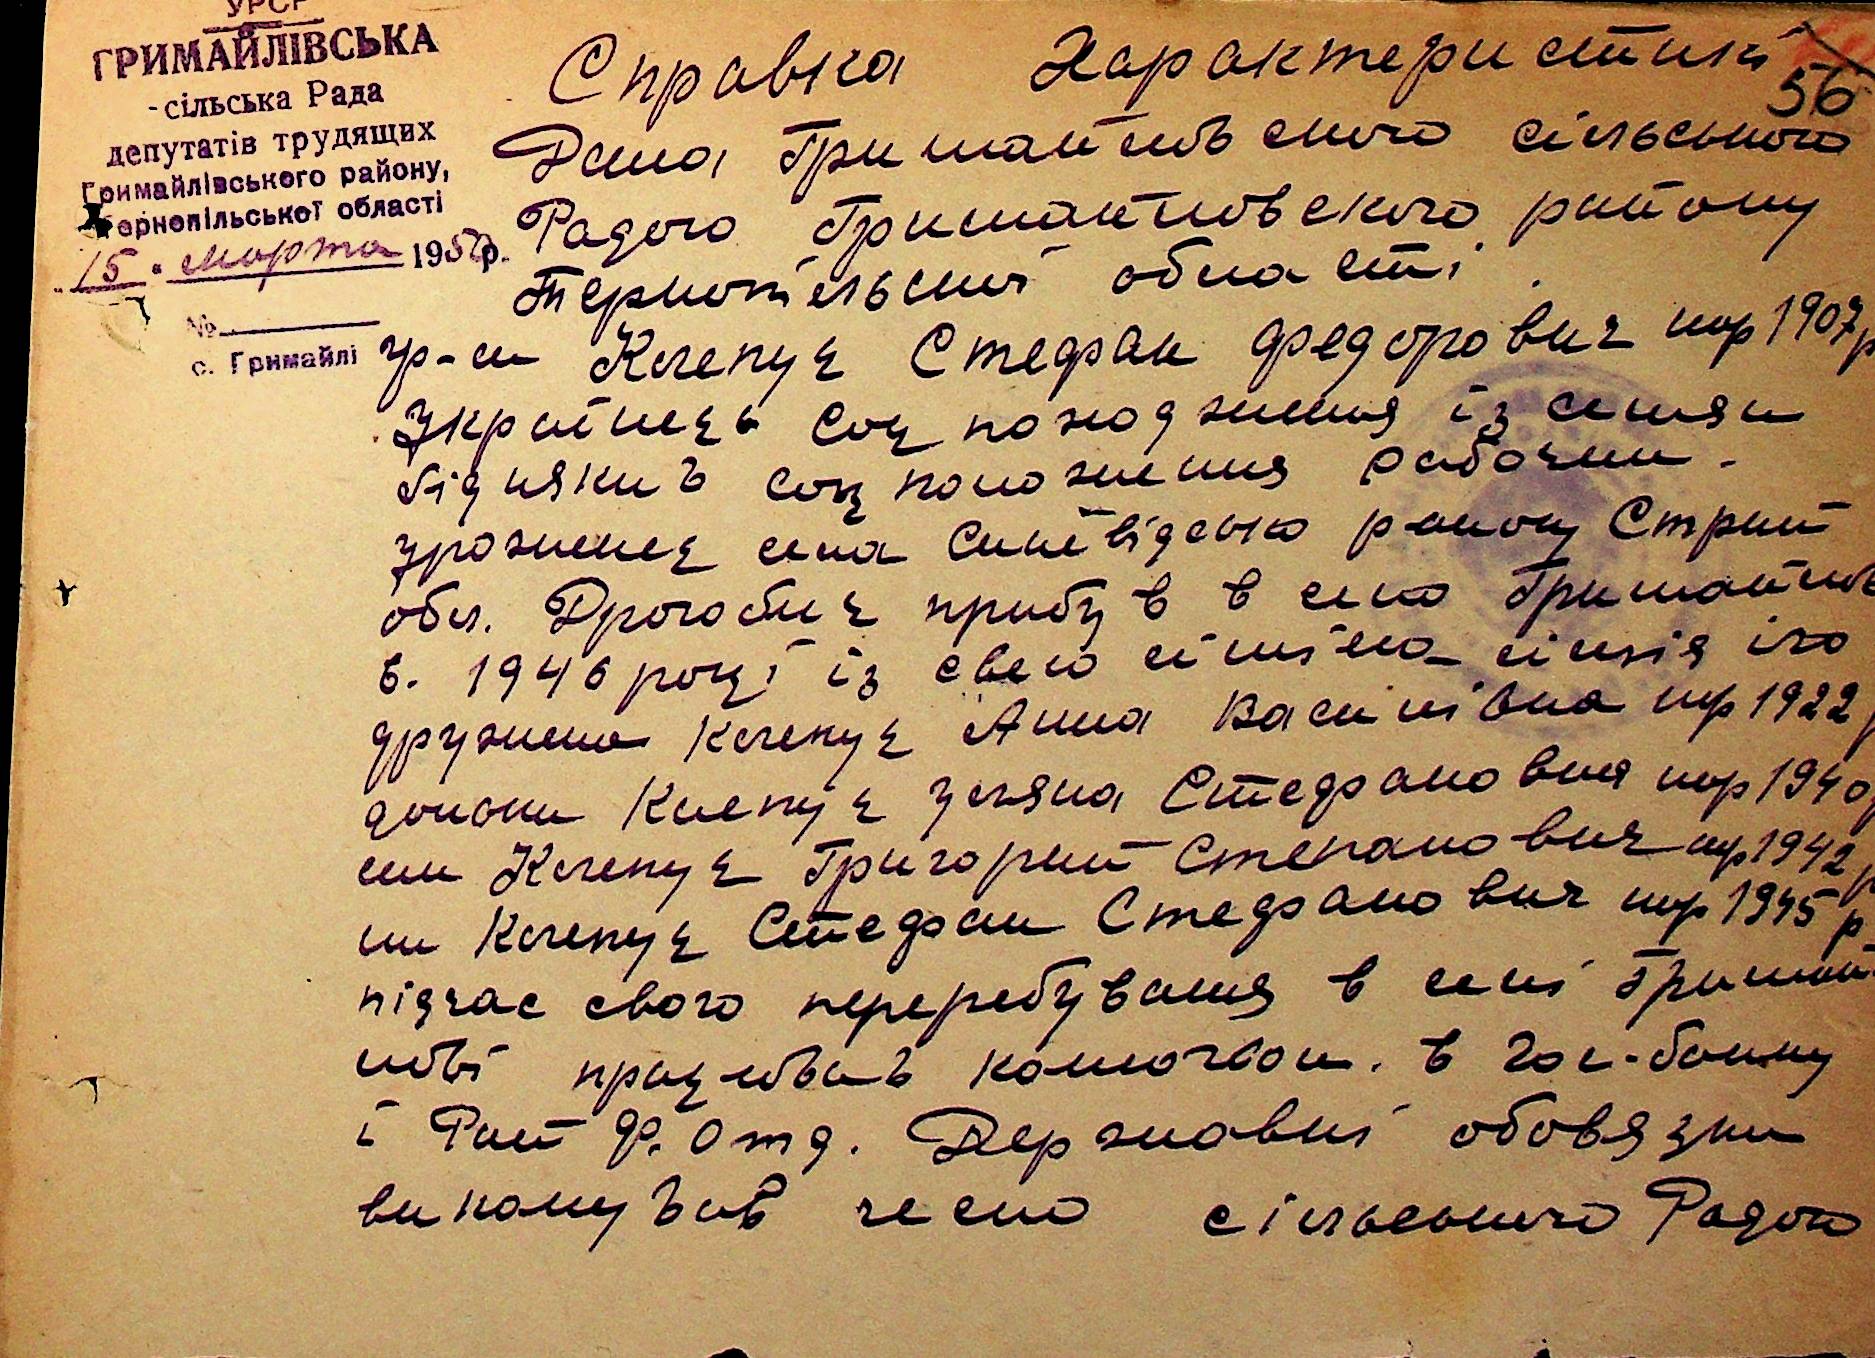 УРСР
ГРИМАЙЛІВСЬКА
-сільська Рада
депутатів трудящих
Гримайлівського району,
Тернопільської області
"15" марта 1950 р.
№
с. Гримайлі
56
Справка Характеристикі
Дана Гримайлівского сільського
Радого Гримайловского району
Тернопільскої області.
гр-ни Клепуц Стефан Федорович нор 1907 р
Українець соц походження із семяи
бідняків соц положення рабочии.
уроженец села Синевідсько району Стрий
обл. Дрогобич прибув в село Гримайлов
в. 1946 році із свею сімʼєю сімія іго
дружина Клепуц Анна Василівна нор 1922 р
доньки Клепуц Уляна Стефановня нор 1940 р
син Клепуц Григорий Степанович нор 1942 р
син Клепуц Стефан Стефанович нор 1945 р.
підчас свого перербування в селі Гримай
лові працював конюхом. в Гос-банку
і Рай Ф. Отд. Державні обовязки
виконував чесно сільського Радого